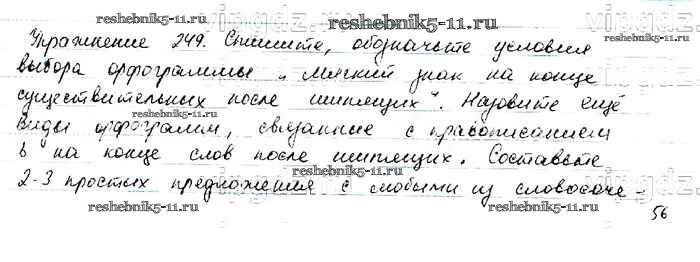 reshebnik5-11.ru
Упражнение 249. Спишите, обозначьте условия
выбора орфограммы „Мягкий знак на конце
существительных после шипящих". Назовите ещё
виды орфограмм, связанные с правописанием
ь на конце слов после шипящих. Составьте
2-3 простых предложения с любыми из словосоче-
reshebnik5-11.ru
reshebnik5-11.ru
56